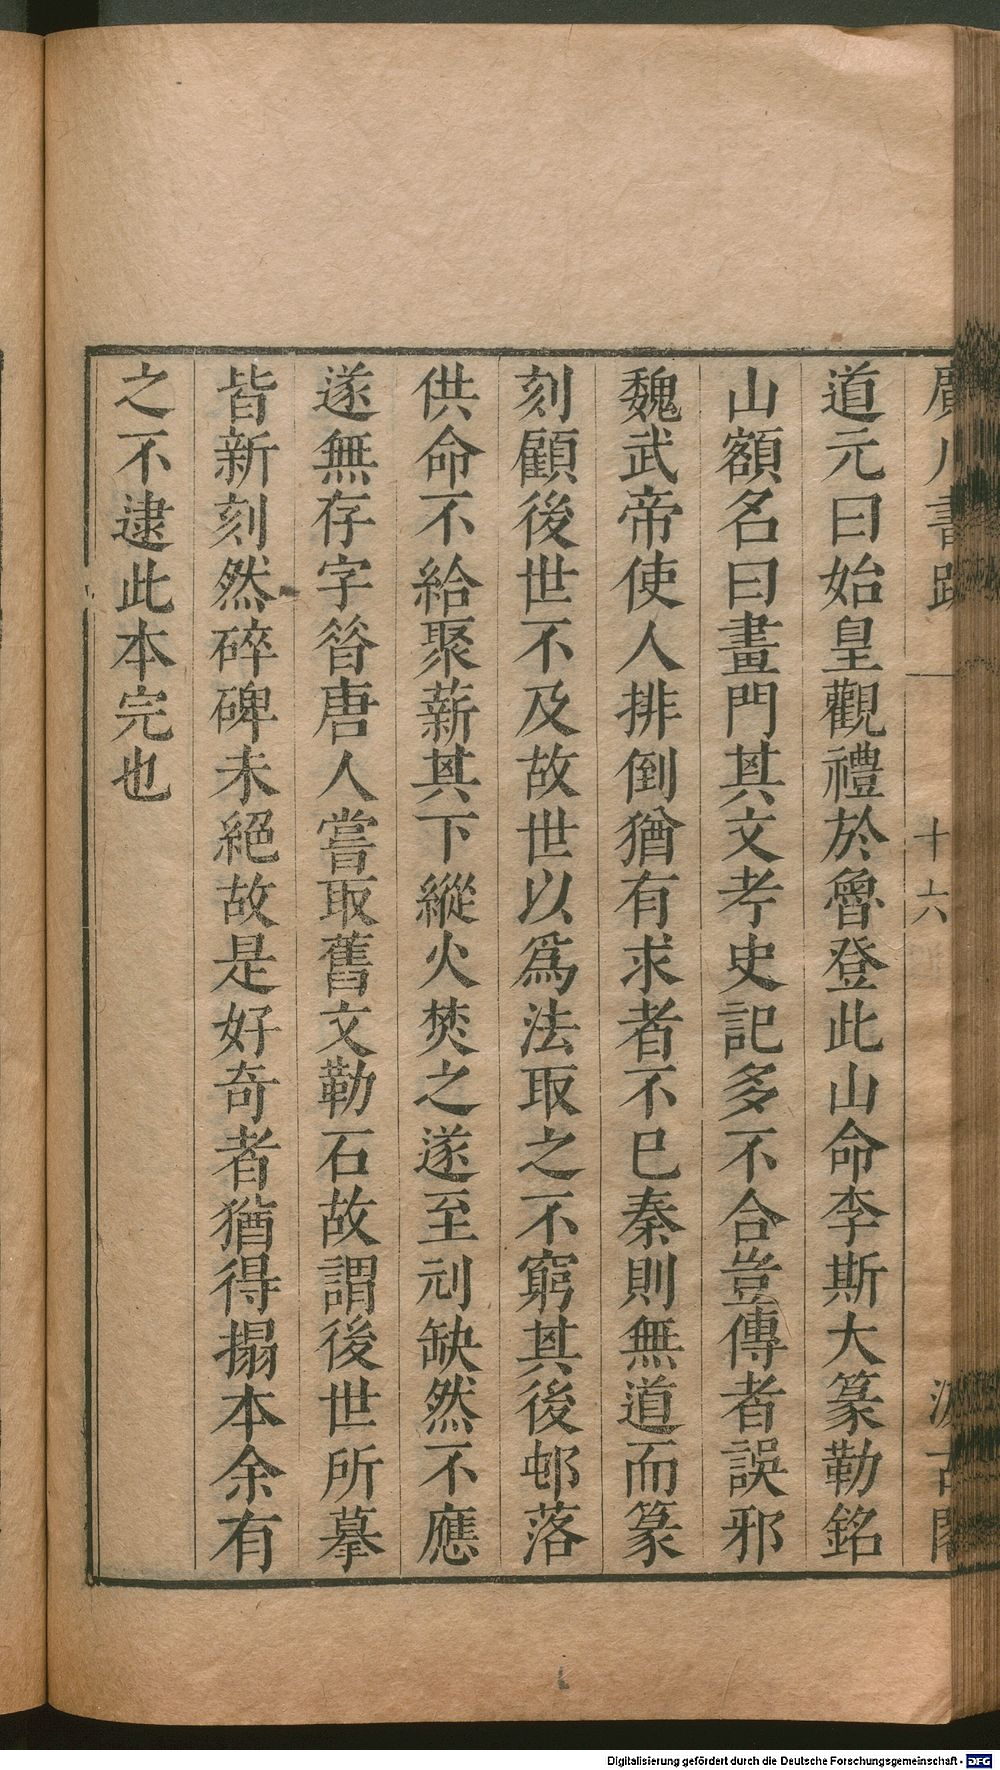 廣川書跋
十六
汲古閣
道元曰始皇觀禮於魯登此山命李斯大篆勒銘
山額名曰畫門其文考史記多不合豈傳者誤邪
魏武帝使人排倒猶有求者不已秦則無道而篆
刻顧後世不及故世以爲法取之不窮其後邨落
供命不給聚薪其下縱火焚之遂至刓缺然不應
遂無存字昝唐人嘗取舊文勒石故謂後世所摹
皆新刻然碎碑未絕故是好奇者猶得搨本余有
之不逮此本完也
Digitalisierung gefördert durch die Deutsche Forschungsgemeinschaft - DFG